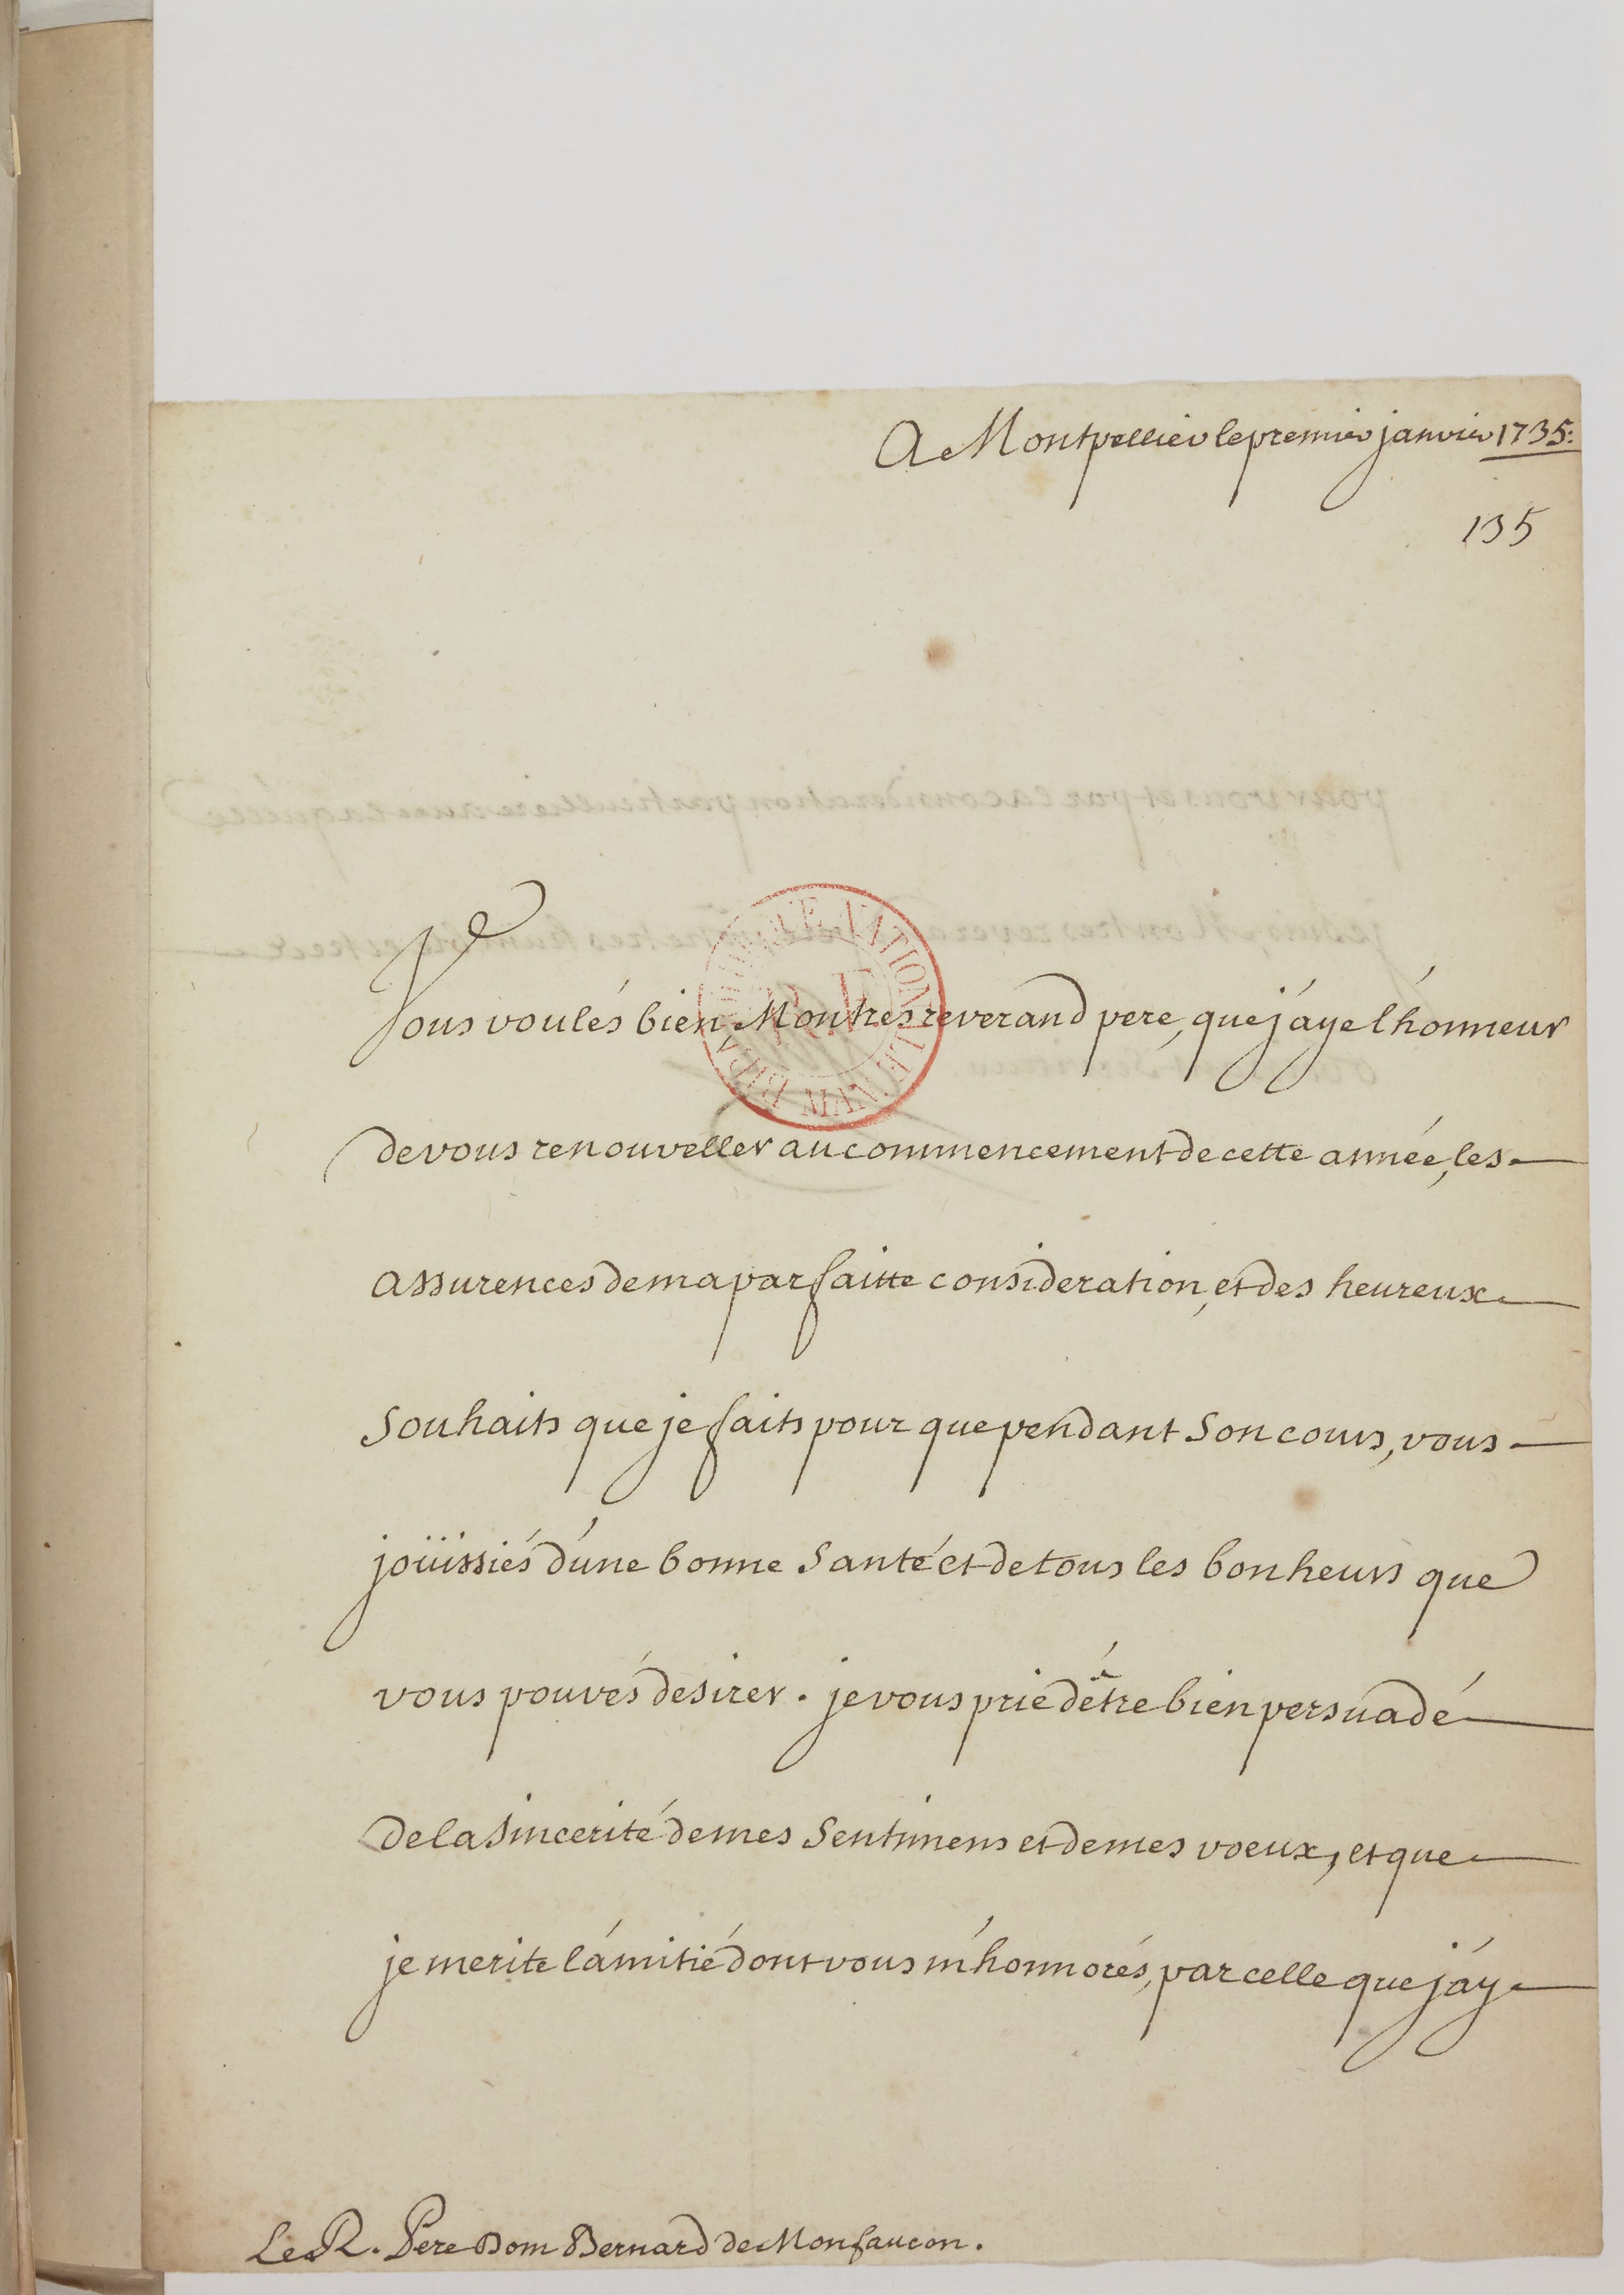 A Montpellier le premier janvier 1735.
135
Vous voulés bien Mon tres reverand pere, que j'aye l'honneur
de vous renouveller au commencement de cette année, les
assurences de ma parfaitte consideration, et des heureux
souhaits que je faits pour que pendant son cours, vous
joüissiés d'une bonne santé et de tous les bonheurs que
vous pouvés desirer. je vous prie d'être bien persuadé
de la sincerité de mes sentimens et de mes voeux, et que
je merite l'amitié dont vous m'honnorés, par celle que j'ay
Le R. Pere Dom Bernard de Monfaucon.
BIBLIOTHEQUE NATIONALE MAN.
R.F.